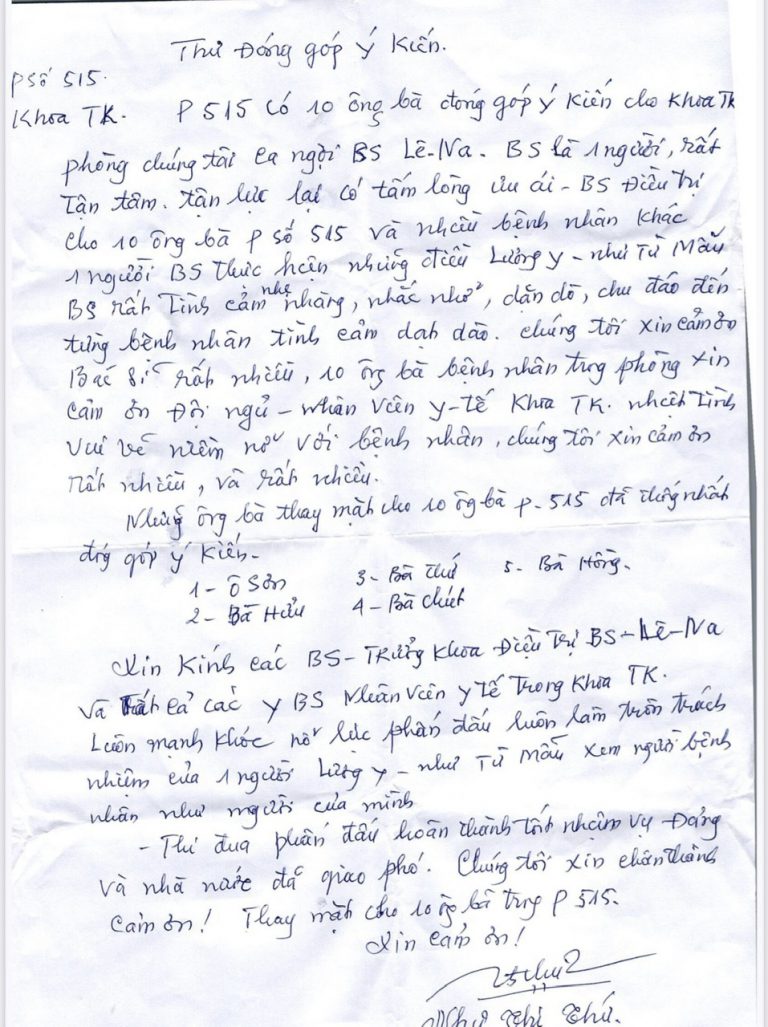 Thư Đóng góp Ý Kiến.
P Số 515.
Khoa TK. P 515 Có 10 ông bà đóng góp ý Kiến cho Khoa TK
phòng chúng tôi ca ngợi BS Lê-Na. BS là 1 người, rất
Tận tâm. tận lực lại có tấm lòng ưu ái - BS Điều Trị
Cho 10 ông bà P Số 515 và nhiều bệnh nhân Khác
1 người BS thực hiện những điều Lương y - như Từ Mẫu
BS rất Tình cảm nhẹ nhàng, nhắc nhở, dặn dò, chu đáo đến
từng bệnh nhân tình cảm dạt dào. Chúng tôi xin cảm ơn
Bác Sĩ rất nhiều, 10 ôg bà bệnh nhân trog phòng xin
Cảm ơn Đội ngủ - nhân Viên y-tế Khoa TK. nhiệt Tình
Vui vẻ niềm nở với bệnh nhân, chúng tôi xin cảm ơn
rất nhiều, và rất nhiều.
Những ôg bà thay mặt cho 10 ôg bà P-515 đã thốg nhất
đóg góp ý Kiến-
1- Ô Sơn 3- Bà Thứ 5- Bà Hồng.
2- Bà Hữu 4- Bà Chút
Xin Kính các BS - Trưởg Khoa Điều Trị BS - Lê-Na
Và tất cả các y BS Nhân Viên y Tế Trong Khoa TK.
Luôn mạnh Khỏe nỗ lực phấn đấu luôn làm tròn trách
nhiệm của 1 người Lương y - như Từ Mẫu xem người bệnh
nhân như người của mình
- Thi đua phấn đấu hoàn thành tốt nhiệm vụ Đảng
và nhà nước đã giao phó. Chúng tôi xin chân thành
Cảm ơn! Thay mặt cho 10 ôg bà trog P 515.
Xin cảm ơn!
Thị Thứ.